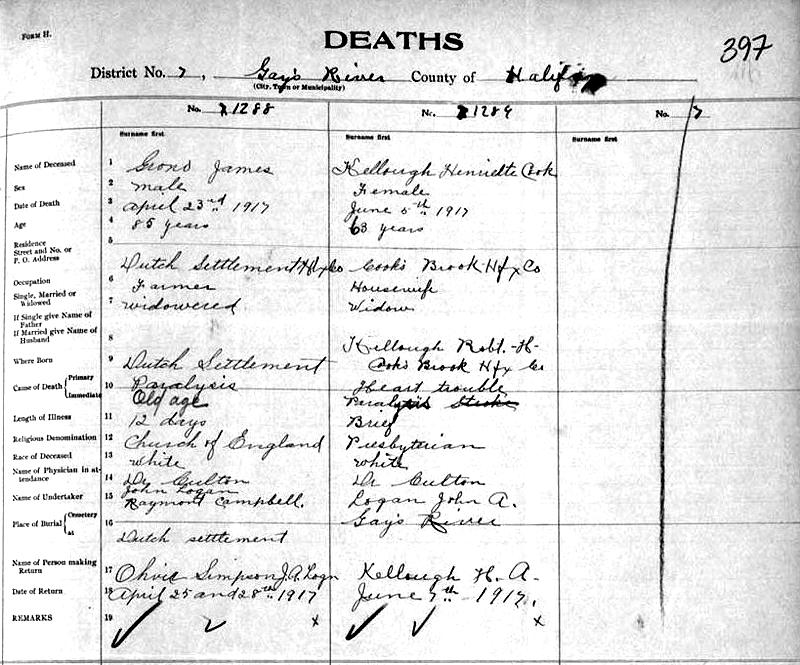 FORM H.
DEATHS
397
District No. 7, Gay's River County of Halifax
(City, Town or Municipality)
No. 1288 No. 1289 No. 7
Surname first Surname first Surname first
Name of Deceased 1 Grono James Kellough Henriette Cook
Sex 2 male Female
Date of Death 3 April 23rd 1917 June 5th 1917
Age 4 85 years 63 years
Residence 5
Street and No. or
P. O. Address Dutch Settlement Hfx Co Cook's Brook Hfx Co
Occupation 6 Farmer Housewife
Single, Married or
Widowed 7 widowered Widow
If Single give Name of
Father
If Married give Name of
Husband 8 Kellough Robt. H-
Where Born 9 Dutch Settlement Cooks Brook Hfx Co
Cause of Death Primary 10 Paralysis Heart trouble
Immediate Old age Paralysis Stroke
Length of Illness 11 12 days Brief
Religious Denomination 12 Church of England Presbyterian
Race of Deceased 13 white white
Name of Physician in at-
tendance 14 Dr Culton Dr Culton
Name of Undertaker 15 John Logan
Raymont Campbell. Logan John A.
Place of Burial Cemetery at 16 Gay's River
Dutch settlement
Name of Person making
Return 17 Simpson J. A. Logn Kellough H. A.
Date of Return 18 April 25 and 28th 1917 June 7th 1917.
REMARKS 19